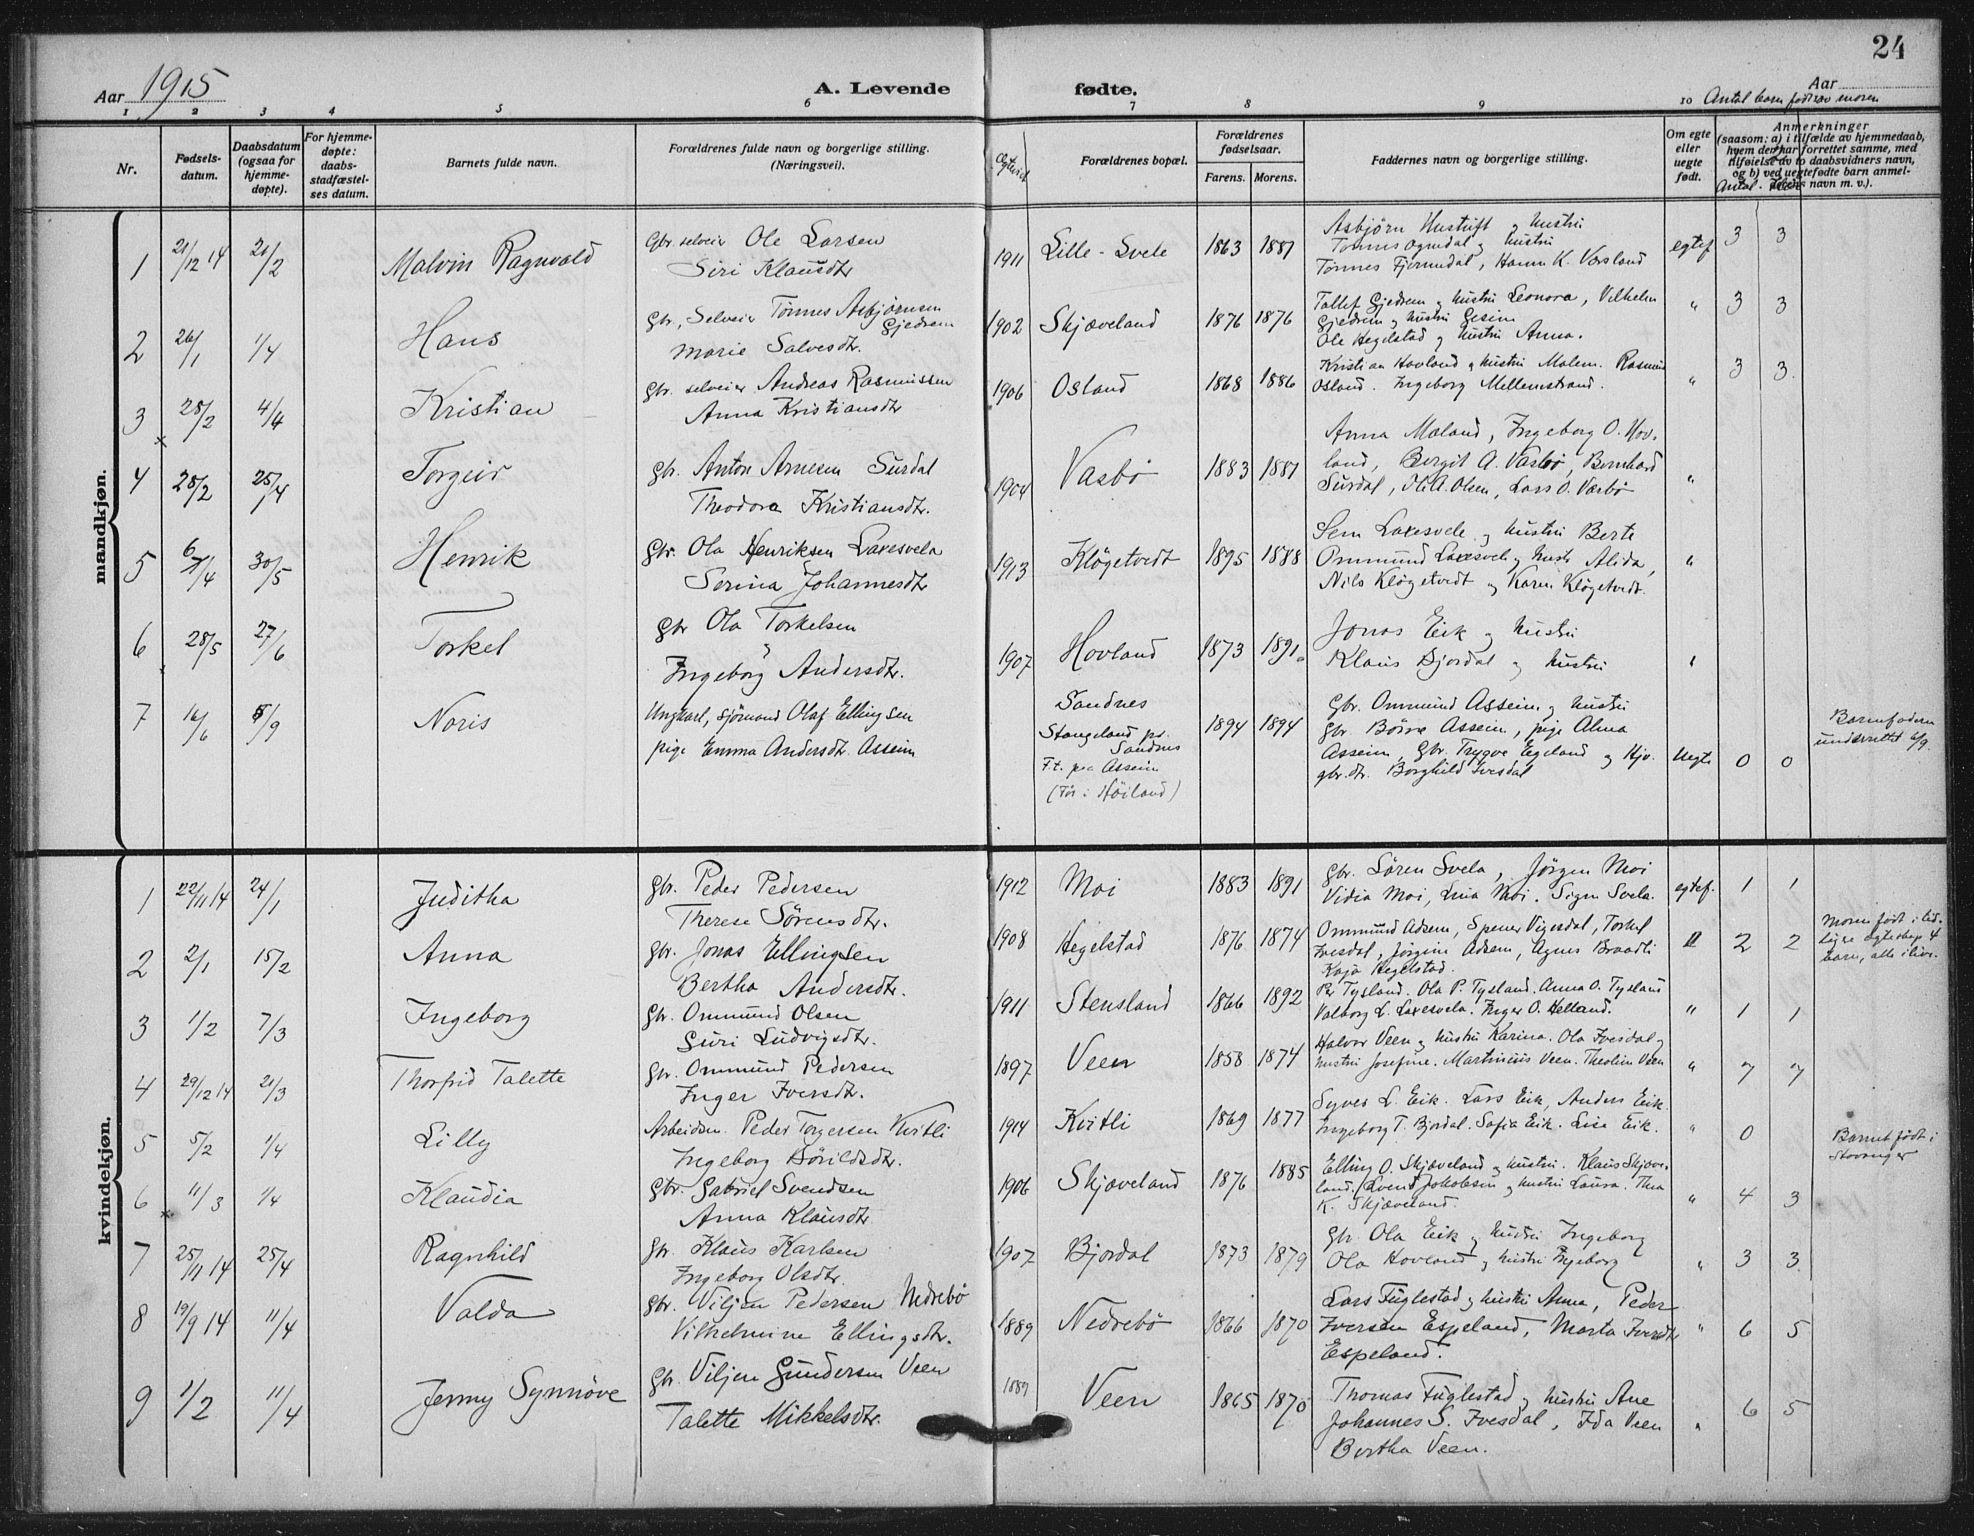 24
Aar 1915 A. Levende fødte. Aar
1 2 3 4 5 6 7 8 9 10 Antal barn født av moren
Nr. Fødsels-datum. Daabsdatum (ogsaa for hjemme-døpte). For hjemme-døpte: daabs-stadfæstel-ses datum. Barnets fulde navn. Forældrenes fulde navn og borgerlige stilling. (Næringsvei). Egtevied Forældrenes bopæl. Forældrenes fødselsaar. Farens. Morens. Faddernes navn og borgerlige stilling. Om egte eller uegte født. Anmerkninger (saasom: a) i tilfælde av hjemmedaab, hvem der har forrettet samme, med tilføielse av to daabsvidners navn, og b) ved uegtefødte barn anmel-derens navn m. v.).
Antal
mandkjøn.
1 21/12 14 21/2 Malvin Ragnvald Gbr. selveier Ole Larsen
Siri Klausdtr 1911 Lille-Svele 1863 1881 Asbjørn Hustuft og hustru
Tønnes Ognedal og hustru
Tønnes Fjermedal, Hanna K. Vasland egtef 3 3
2 26/1 1/4 Hans Gbr, Selveier Tønnes Asbjørnsen Gjedrem
Marie Salvesdtr. 1902 Skjæveland 1876 1876 Tallef Gjedrem og hustru Leonora, Vilhelm
Gjedrem og hustru Gesine
Ole Hegelstad og hustru Anna. " 3 3
3 28/2 4/4 Kristian Gbr. selveier Andreas Rasmussen
Anna Kristiansdtr 1906 Osland 1868 1886 Kristian Hovland og hustru Malene. Rasmus
Osland. Ingeborg Mellemstrand. " 3 3
4 28/2 25/4 Torgeir Gbr. Anton Arnesen Surdal
Theodora Kristiansdtr. 1904 Vasbø 1883 1881 Anna Maland, Ingeborg O. Hov-
land, Bergit A. Vasbø, Bernhard
Surdal, Ole A. Olsen, Lars O. Vasbø "
5 6/4 30/5 Henrik Gbr. Ola Henriksen Laxesvela
Serina Johannesdtr 1913 Kløgetvedt 1895 1888 Sem Laxesvele og hustru Berte
Ommund Laxesvele og hust. Alida,
Nils Kløgetvedt og Karen Kløgetvedt. "
6 28/5 27/6 Torkel Gbr Ola Torkelsen
og
Ingeborg Andersdtr. 1907 Hovland 1873 1891 Jonas Eik og hustru
Klaus Bjordal og hustru "
7 16/6 5/9 Noris Ungkarl, sjømand Olaf Ellingsen
pige Emma Andersdtr. Asseim Sandnes
Stangeland pr. Sandnes
F.t. paa Asseim
(før i Høiland) 1894 1894 Gbr. Ommund Asseim og hustru
gbr Børre Asseim, pige Alma
Asseim, Gbr. Trygve Egeland og Hjv.
gbr.dtr. Borghild Ivesdal Uegte 0 0 Barnefaderen
underrettet 6/9.
kvindekjøn.
1 22/11 14 24/1 Juditha Gbr. Peder Pedersen
Therese Sørensdtr. 1912 Moi 1883 1891 Gbr. Søren Svela, Jørgen Moi
Vidia Moi, Lina Moi. Signe Svela. egtef. 1 1
2 2/1 15/2 Anna Gbr. Jonas Ellingsen
Bertha Andersdtr. 1908 Hegelstad 1876 1874 Ommund Adsem, Spener Vigesdal, Torkel
Ivesdal, Jørgine Adsem, Agnes Braadli
Kaja Hegelstad. " 2 2 Moren født i tid-
ligere egteskap 4
barn, alle i live.
3 1/2 7/3 Ingeborg Gbr. Ommund Olsen
Guri Ludvigsdtr. 1911 Stensland 1866 1892 Per Tysland. Ola P. Tysland. Anna O. Tysland
Valborg L. Laxesvela. Inger O. Helland. " 1 1
4 29/12 14 21/3 Thorfrid Talette Gbr. Ommund Pedersen
Inger Iversdtr. 1897 Veen 1858 1874 Halvor Veen og hustru Karina. Ola Ivesdal og
hustru Josefine. Martinius Veen. Theoline Veen " 7 7
5 5/2 1/4 Lilly Arbeidsm. Peder Torgersen Kvitli
Ingeborg Børildsdtr. 1914 Kvitli 1869 1877 Syver L. Eik. Lars Eik, Anders Eik.
Ingeborg T. Bjordal. Sofia Eik. Lise Eik. " 0 Barnet født i
Stavanger
6 11/3 1/4 Klaudia Gbr. Gabriel Svendsen
Anna Klausdtr 1906 Skjæveland 1876 1885 Elling O. Skjæveland og hustru. Klaus Skjæve-
land. Svend Jakobsen og hustru Laura. Thea
K. Skjæveland. " 4 3
7 25/11 14 25/4 Ragnhild Gbr. Klaus Karlsen
Ingeborg Olsdtr. 1907 Bjordal 1873 1879 Gbr. Ola Eik og hustru Ingeborg
Ola Hovland og hustru Ingeborg " 3 3
8 19/9 14 11/4 Valda Gbr. Viljen Pedersen Nedrebø
Vilhelmine Ellingsdtr. 1889 Nedrebø 1866 1870 Lars Fuglestad og hustru Anna, Peder
Iversen Espeland, Marta Iversdtr
Espeland. " 6 5
9 1/2 11/4 Jenny Synnøve Gbr. Viljen Gundersen Veen
Talette Mikkelsdtr. 1889 Veen 1865 1870 Thomas Fuglestad og hustru Ane
Johannes S. Ivesdal, Ida Veen
Bertha Veen. " 6 5